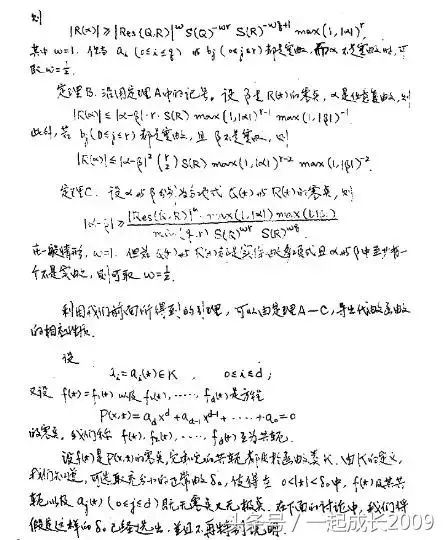 则
|R(α)| ≥ |Res(Q,R)|^w S(Q)^{-wr} S(R)^{-wq+1} max(1,|α|)^r,
其中 w=1. 但当 a_i (0≤i≤q) 与 b_j (0≤j≤r) 都是实数, 而 α 不是实数时, 可
取 w=½.
定理B. 沿用定理A中的记号. 设 β 是 R(x) 的零点, α 是任意复数, 则
|R(α)| ≤ |α-β|·r·S(R) max(1,|α|)^{r-1} max(1,|β|)^{-1}
此外, 若 b_j (0≤j≤r) 都是实数, 且 β 不是实数, 则
|R(α)| ≤ |α-β|² (r 2) S(R) max(1,|α|)^{r-2} max(1,|β|)^{-2}.
定理C. 设 α 与 β 分别为多项式 Q(x) 与 R(x) 的零点, 则
|α-β| ≥ |Res(Q,R)|^w max(1,|α|) max(1,|β|) / min(q,r) S(Q)^{wr} S(R)^{wq}
在一般情形, w=1. 但若 Q(x) 与 R(x) 都是实系数多项式且 α 与 β 中至少有一
个不是实数, 则可取 w=½.
利用我们前面所得到的引理, 可以由定理A—C, 导出代数函数
的相应性质.
设
a_i = a_i(z) ∈ K, 0≤i≤d;
又设 f(z)=f_1(z) 以及 f_2(z), ……, f_d(z) 是方程
P(x,z) = a_d x^d + a_{d-1} x^{d-1} + …… + a_0 = 0
的零点. 我们称 f_1(z), f_2(z), ……, f_d(z) 互为共轭.
设 f(z) 是 P(x,z) 的零点, 它和它的共轭都属于函数类 K. 由 K 的定义,
我们知道, 可选取充分小的正常数 δ_0, 使得在 0<|z|<δ_0 中, f(z) 及其共
轭以及 a_j(z) (0≤j≤d) 既无零点又无极点. 在下面的讨论中, 我们将
假定这样的 δ_0 已经选出, 并且不再特别说明.
头条号 / 一起成长2009